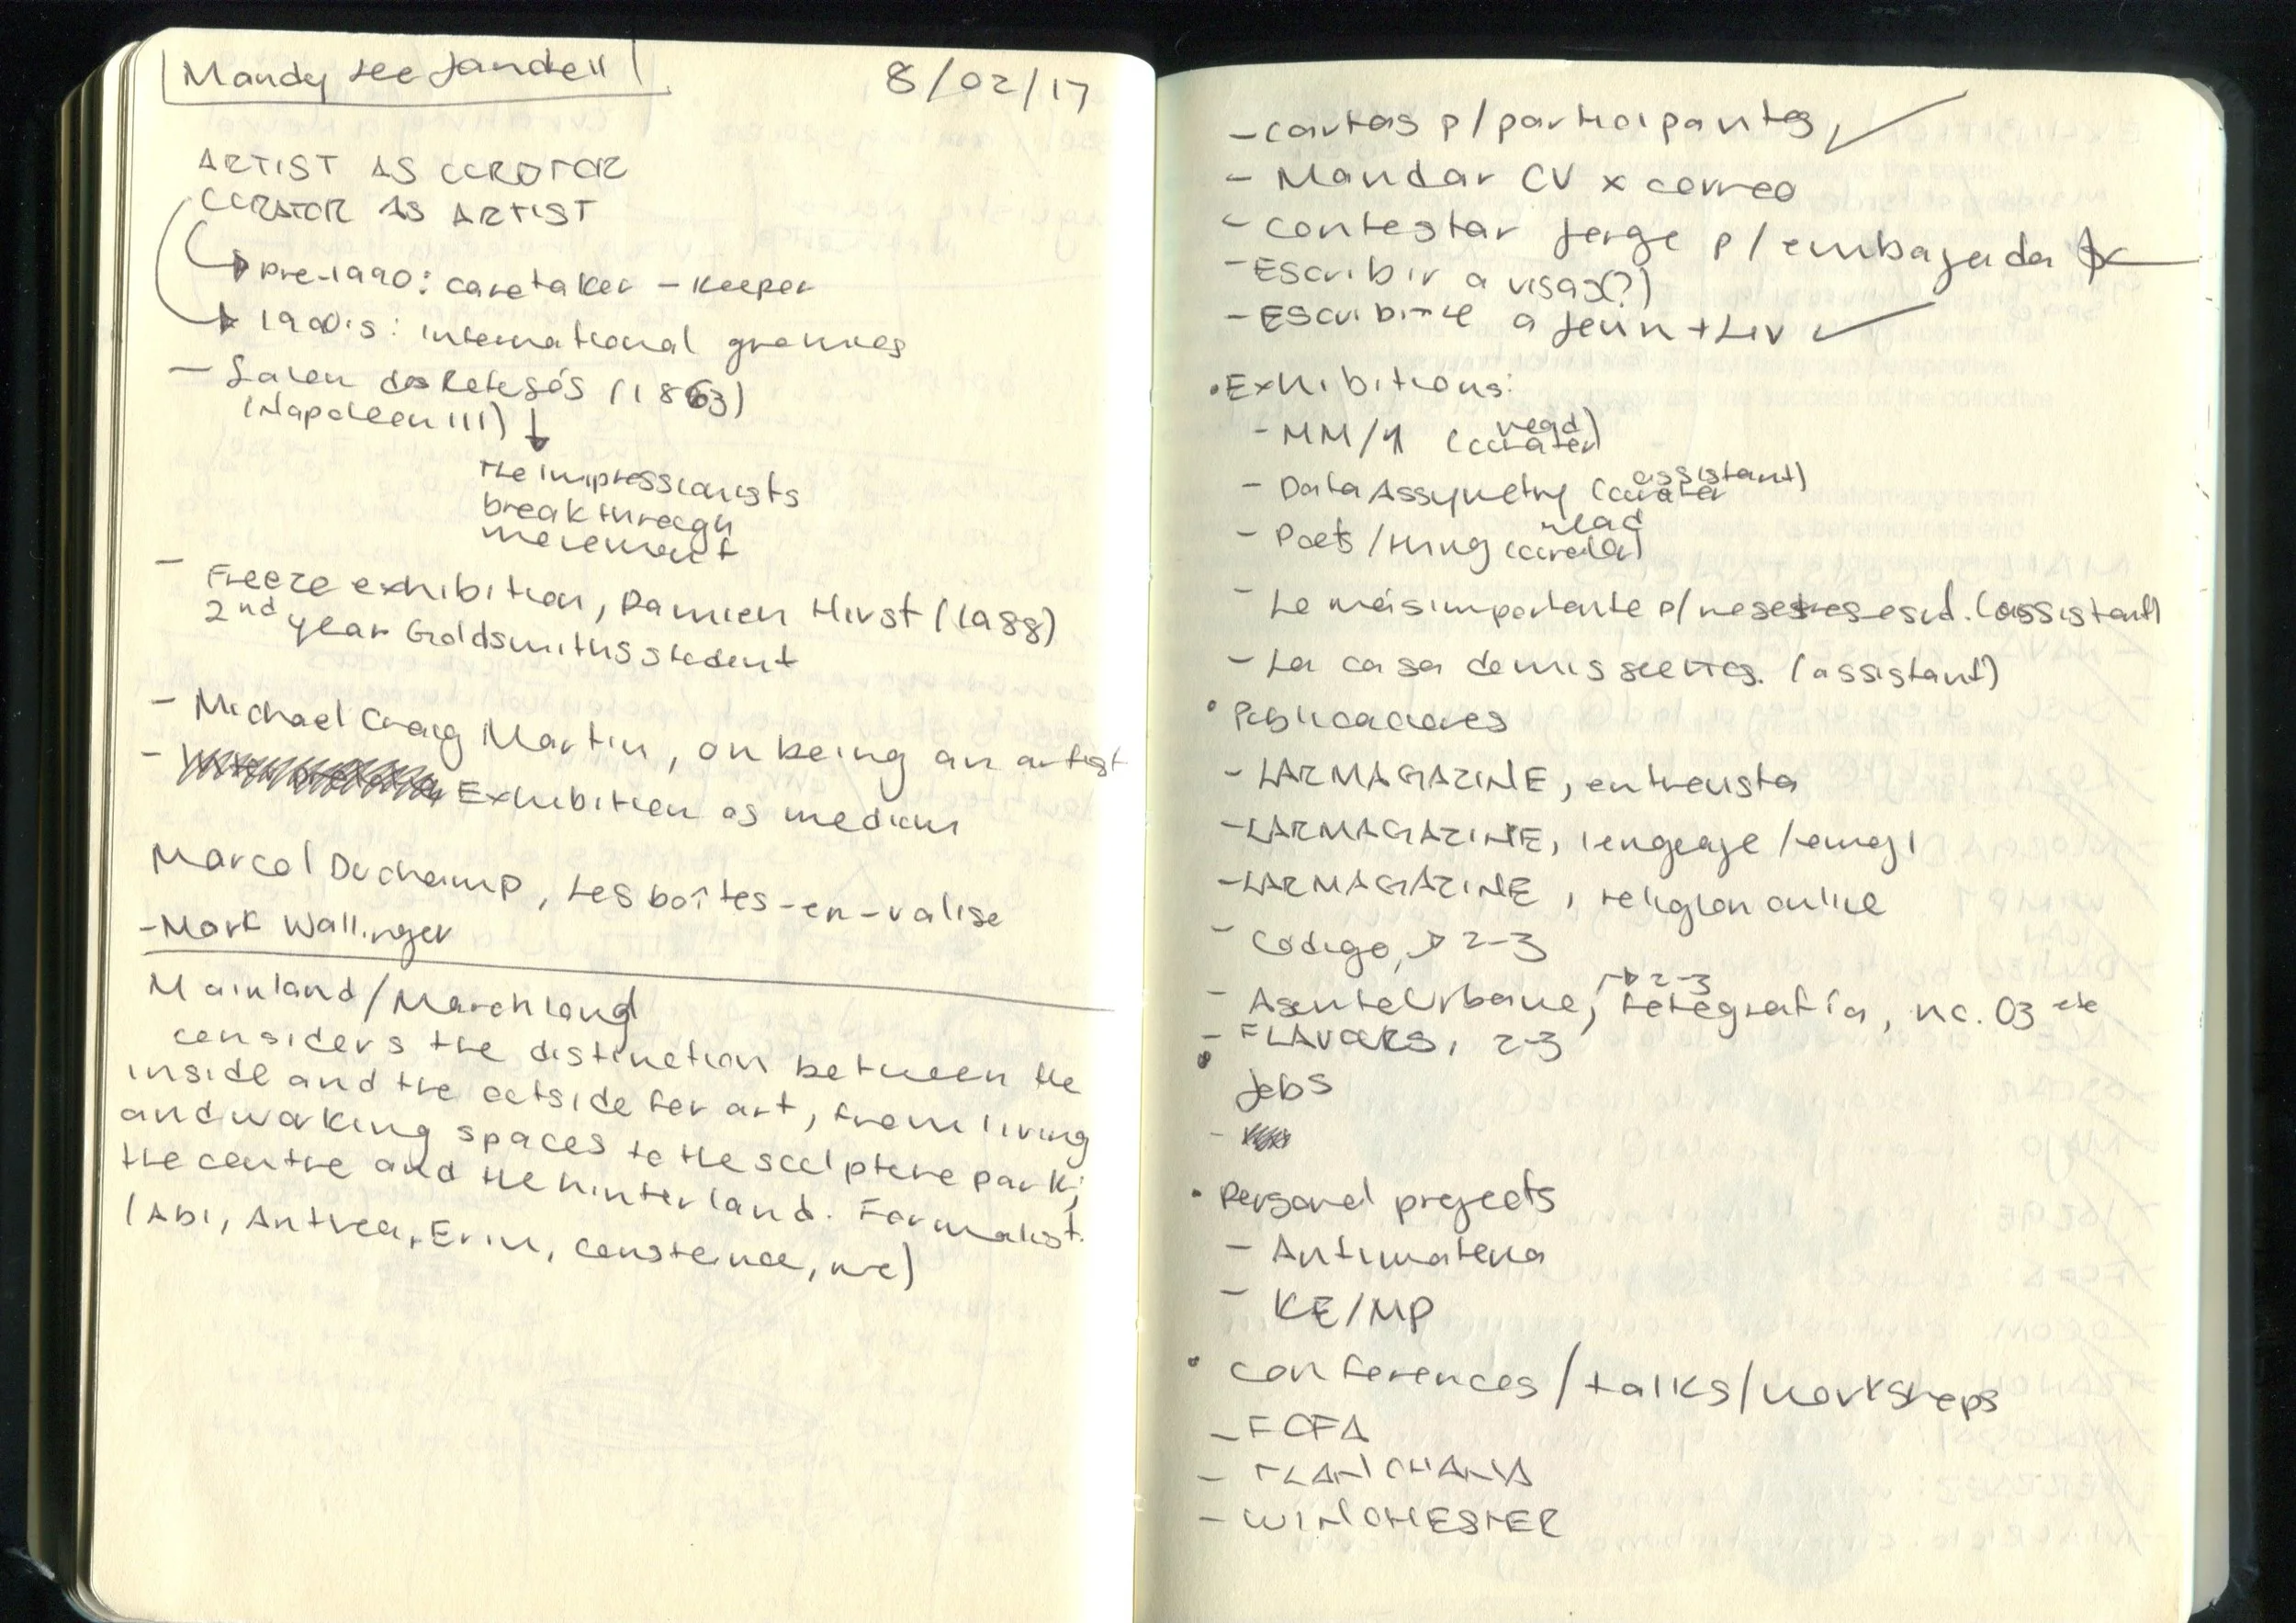 Mandy Lee Jandell
8/02/17
ARTIST AS CURATOR
CURATOR AS ARTIST
pre-1990: caretaker - keeper
1990's: international
- Salon des Refusés (1863)
(Napoleon III)
The impressionists
breakthrough
movement
- Freeze exhibition, Damien Hirst (1988)
2nd year Goldsmiths student
- Michael Craig Martin, on being an artist
- Exhibition as medium
Marcel Duchamp, Les boîtes-en-valise
- Mark Wallinger
Mainland/Marchland
considers the distinction between the
inside and the outside for art, from living
and working spaces to the sculpture park;
the centre and the hinterland. Formalist.
(Abi, Anthea, Erin, Constance, me)
- cartas p/participantes
- Mandar CV x correo
- contestar Jorge p/embajada
- Escribir a visas(?)
- Escribirle a Jenn + Liv
• Exhibitions:
- MM/YY (head curator)
- Data Assymetry (curator assistant)
- Poets/thing (head curator)
- Lo más importante p/nosotros es ud. (assistant)
- La casa de mis sueños. (assistant)
• Publicaciones
- LARMAGAZINE, entrevista
- LARMAGAZINE, lenguaje/emoji
- LARMAGAZINE, religion online
- Código, → 2-3
- Asfalto Urbano, fotografía, no. 03 → 2-3
- FLAVOURS, 2-3
• Jobs
-
• Personal projects
- Antimateria
- KE/MP
• Conferences/talks/workshops
- FCFA
- TLANCHANA
- WINCHESTER